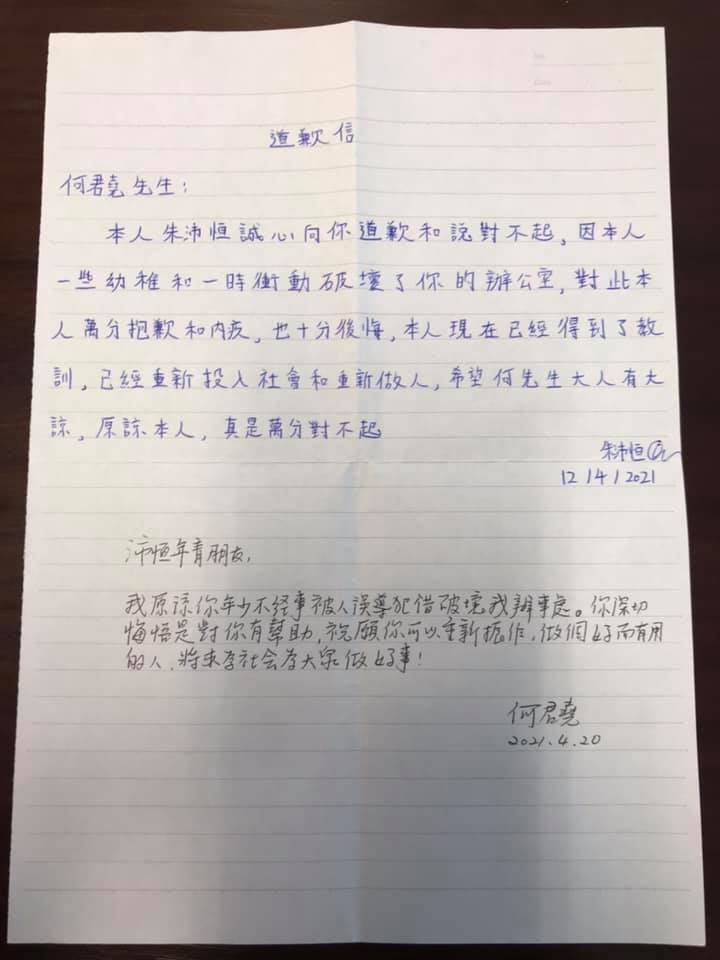 道歉信
何君堯先生：
本人朱沛恒誠心向你道歉和說對不起，因本人
一些幼稚和一時衝動破壞了你的辦公室，對此本
人萬分抱歉和内疚，也十分後悔，本人現在已經得到了教
訓，已經重新投入社會和重新做人，希望何先生大人有大
諒，原諒本人，真是萬分對不起
朱沛恒
12/4/2021
沛恒年青朋友，
我原諒你年少不经事被人误導犯借破壞我辨事處。你深切
悔悟是對你有幫助，祝願你可以重新振作，做個好而有用
的人，將來為社會為大家做好事！
何君堯
2021.4.20